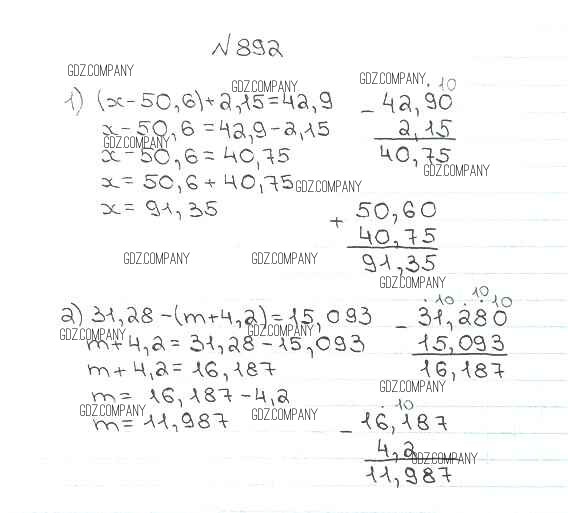 N 892
GDZ.COMPANY
1) (x-50,6)+2,15=42,9
GDZ.COMPANY
x-50,6=42,9-2,15
GDZ.COMPANY
x-50,6=40,75
x=50,6+40,75
GDZ.COMPANY
x=91,35
GDZ.COMPANY
. 10
- 42,90
2,15
40,75
GDZ.COMPANY
+ 50,60
40,75
91,35
GDZ.COMPANY
GDZ.COMPANY
GDZ.COMPANY
2) 31,28-(m+4,2)=15,093
GDZ.COMPANY
GDZ.COMPANY
m+4,2=31,28-15,093
m+4,2=16,187
m=16,187-4,2
GDZ.COMPANY
GDZ.COMPANY
m=11,987
10
. 10 . . 10
- 31,280
15,093
16,187
GDZ.COMPANY
. 10
- 16,187
4,2
GDZ.COMPANY
11,987